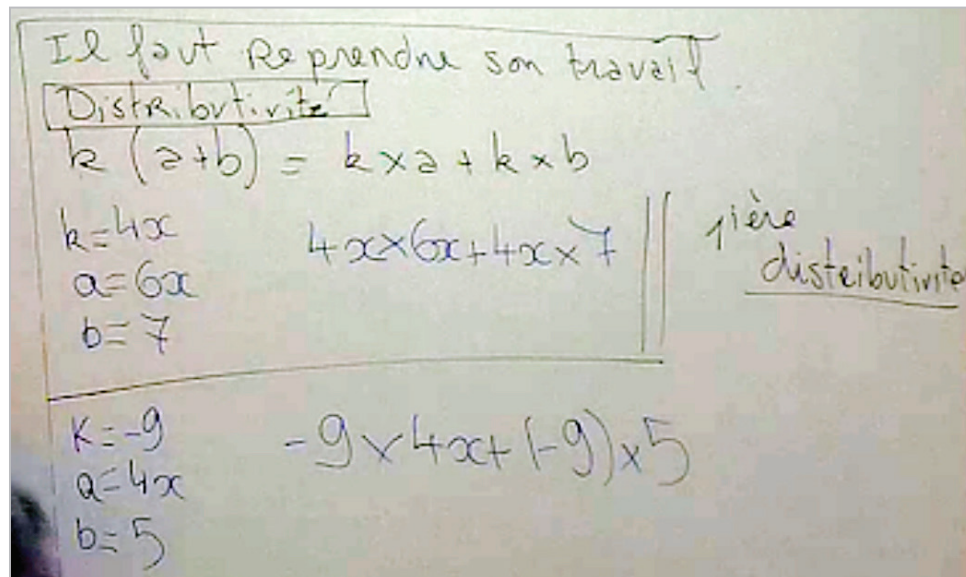 Il faut Reprendre son travail.
Distributivité
k (a+b) = k×a + k×b
k=4x
a=6x
b=7
4x×6x+4x×7
1ière
distributivité
K=-9
a=4x
b=5
-9×4x+(-9)×5